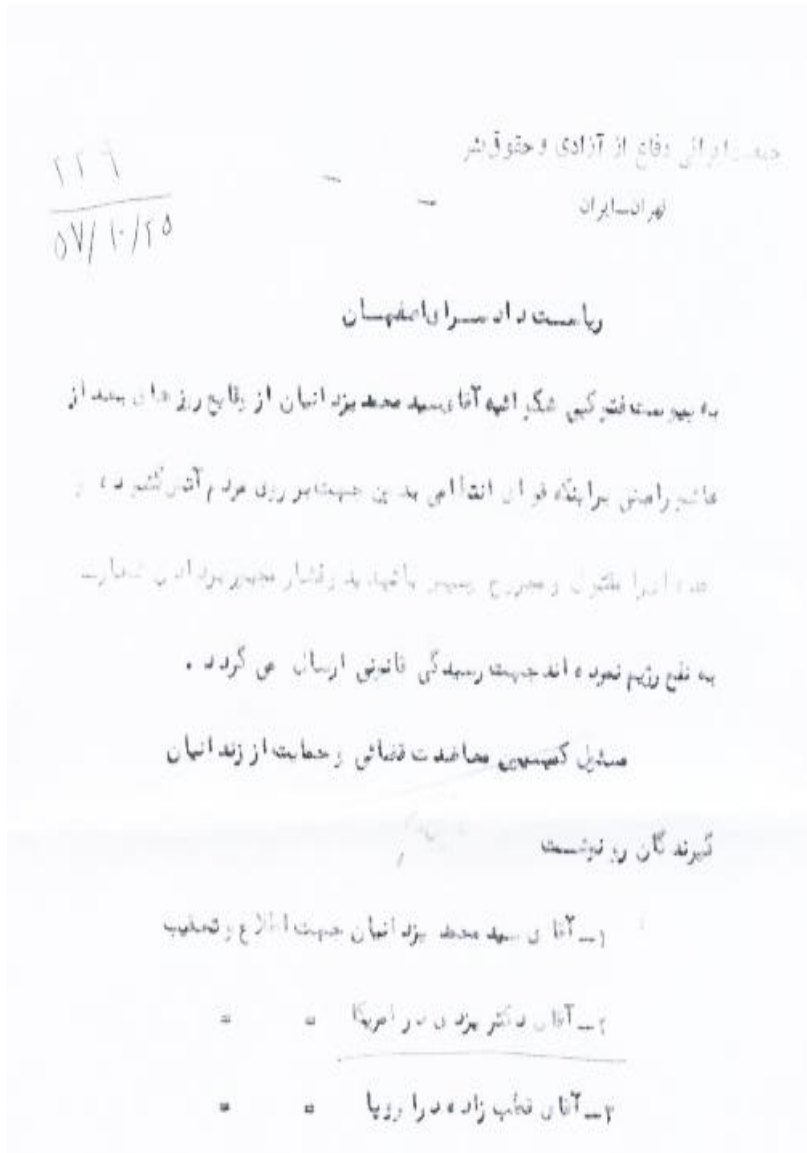 جمعیت ایرانی دفاع از آزادی و حقوق بشر
تهران-ایران
۲۲۹
۵۷/۱۰/۲۵
ریاست دادسرای اصفهان
به پیوست فتوکپی شکوائیه آقای سید محمد یزدانیان از وقایع روزهای بعد از
عاشورا مبنی براینکه قوای انتظامی بدین جهت بر روی مردم آتش گشوده و
عده ای را مقتول و مجروح سپس با تهدید و فشار مجبور به دادن شعار
به نفع رژیم نموده اند جهت رسیدگی قانونی ارسال می گردد .
مسئول کمیسیون معاضدت قضائی و حمایت از زندانیان
گیرندگان رونوشت
۱- آقای سید محمد یزدانیان جهت اطلاع و تعقیب
۲- آقای دکتر یزدی در امریکا " "
۳- آقای قطب زاده در اروپا " "